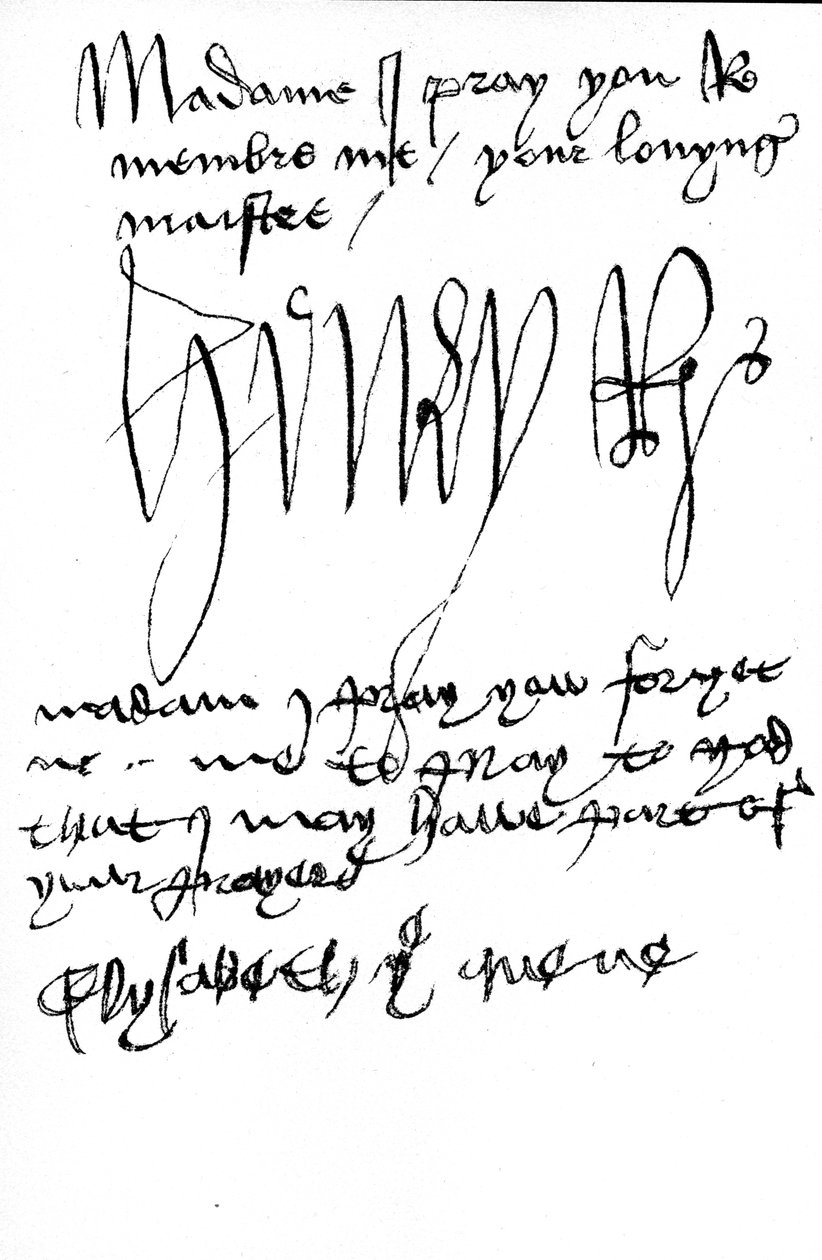 Madame I pray you Re
membre me / your louyng
maistre /
Henry R
madam I pray you forget
not me to pray to god
that I may haue part of
your prayers
Elysabeth ye quene